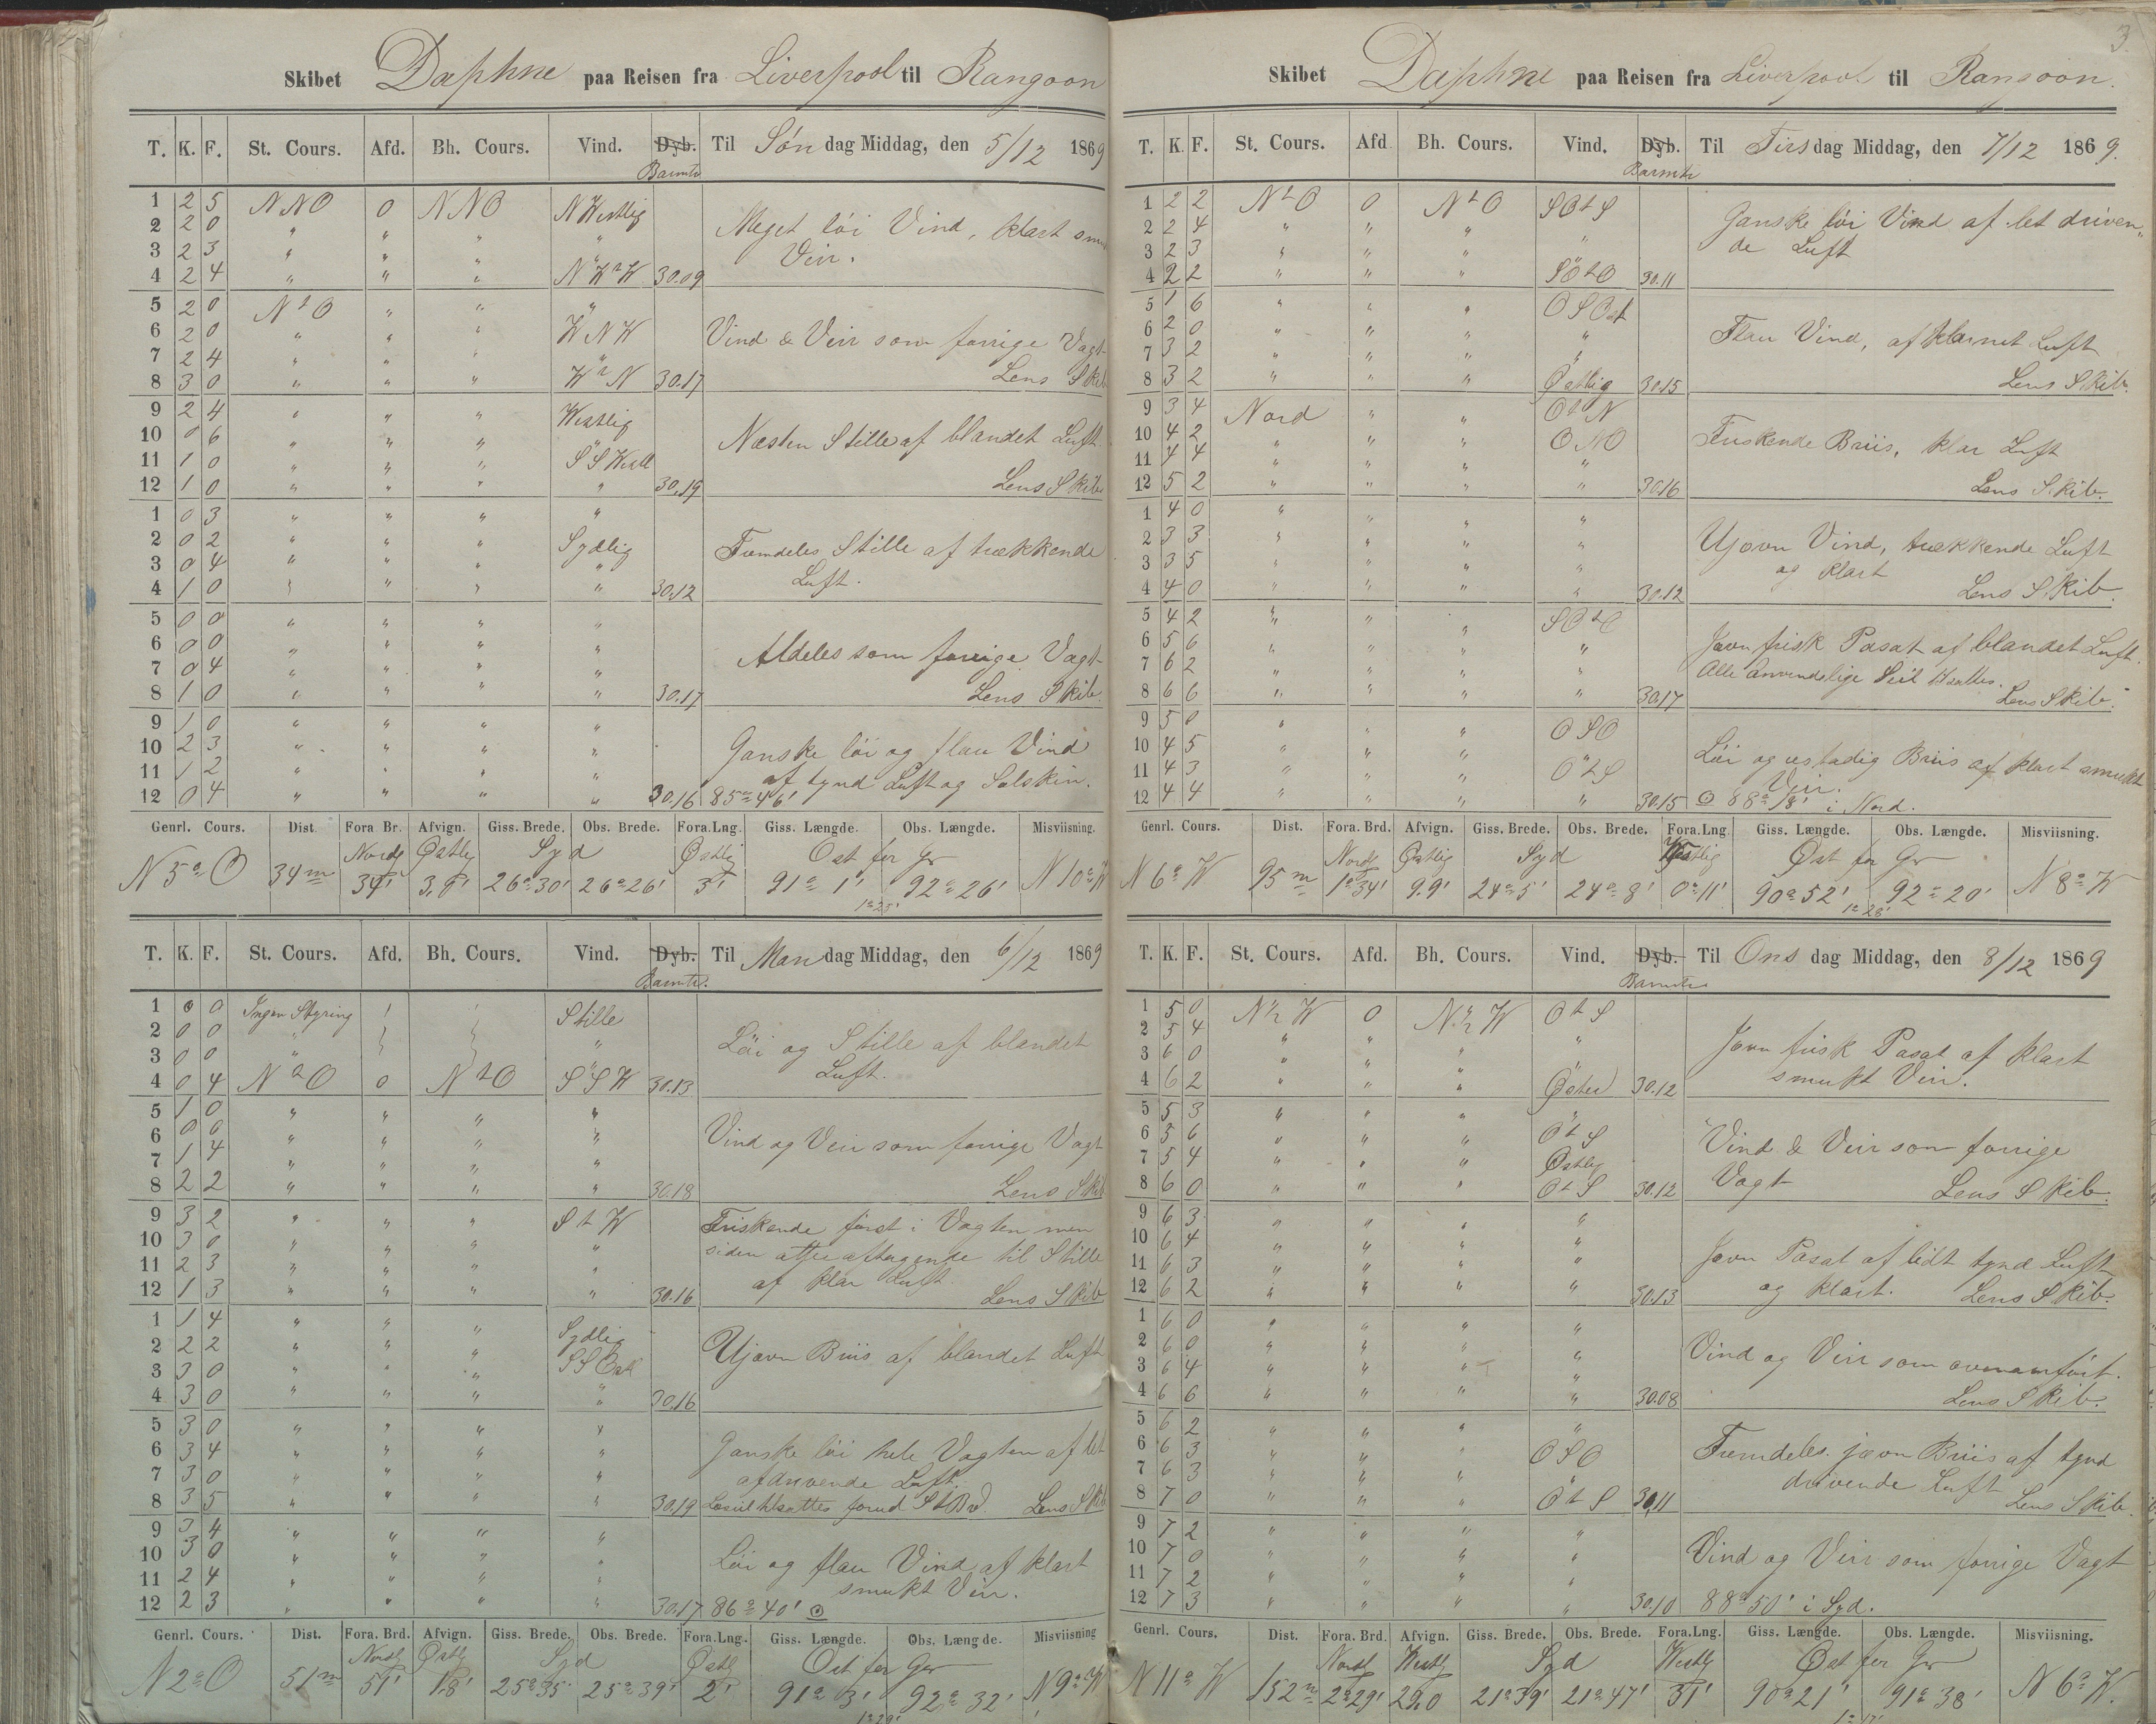 Skibet Daphne paa Reisen fra Liverpool til Rangoon
T. K. F. St. Cours. Afd. Bh. Cours. Vind. Dyb. Til Søn dag Middag, den 5/12 1869
Barmtr
1 2 5 NNO 0 NNO NWestlig
2 2 0 " " " "
3 2 3 " " " "
4 2 4 " " " NWtW 30.09
Meget löi Vind, klart
Veir.
5 2 0 NtO " " "
6 2 0 " " " WNW
7 2 4 " " " "
8 3 0 " " " WtN 30.17
Vind & Veir som forrige Vagt
Lens Skib
9 2 4 " " " Westlig
10 0 6 " " " "
11 1 0 " " " SSWestl
12 1 0 " " " " 30.19
Næsten Stille af blandet Luft
Lens Skib
1 0 3 " " " "
2 0 2 " " " Sydlig
3 0 4 " " " "
4 1 0 " " " " 30.12
Fremdeles Stille af trækkende
Luft.
5 0 0 " " " "
6 0 0 " " " "
7 0 4 " " " "
8 1 0 " " " " 30.17
Aldeles som forrige Vagt
Lens Skib.
9 1 0 " " " "
10 2 3 " " " "
11 1 2 " " " "
12 0 4 " " " " 30.16 85° 46'
Ganske löi og flau Vind
af tynd Luft og Solskin.
Genrl. Cours. Dist. Fora Br. Afvign. Giss. Brede. Obs. Brede. Fora.Lng. Giss. Længde. Obs. Længde. Misviisning.
Nordl Østlig Syd Østlig Ost for Gr
N 5° O 34m 34' 3,9' 26° 30' 26° 26' 3' 91° 1' 92° 26' N 10° W
1° 25'
T. K. F. St. Cours. Afd. Bh. Cours. Vind. Dyb. Til Man dag Middag, den 6/12 1869
Barmtr.
1 0 0 Ingen Styring Stille
2 0 0 " "
3 0 0 " "
4 0 4 NtO 0 NtO SSW 30.13
Löi og Stille af blandet
Luft.
5 1 0 " " " "
6 0 0 " " " "
7 1 4 " " " "
8 2 2 " " " " 30.18
Vind og Veir som forrige Vagt
Lens Skib
9 3 2 " " " StW
10 3 0 " " " "
11 2 3 " " " "
12 1 3 " " " " 30.16
Friskende först i Vagten men
siden atter aftagende til Stille
af klar Luft. Lens Skib
1 1 4 " " " Sydlig
2 2 2 " " " SSOstl
3 3 0 " " " "
4 3 0 " " " " 30.16
Ujævn Briis af blandet Luft
5 3 0 " " " "
6 3 4 " " " "
7 3 0 " " " "
8 3 5 " " " " 30.19
Ganske löi hele Vagten af let
afdrivende Luft.
Læseil tilsattes forud StBrd. Lens Skib
9 3 4 " " " "
10 3 0 " " " "
11 2 4 " " " "
12 2 3 " " " " 30.17 86° 40' ⊙
Löi og flau Vind af klart
smukt Veir.
Genrl. Cours. Dist. Fora. Brd. Afvign. Giss. Brede. Obs. Brede. Fora.Lng. Giss. Længde. Obs. Længde. Misviisning
Nordl Østl Syd Østl Ost for Gr
N 2° O 51m 51' 1.8' 25° 35' 25° 39' 2' 91° 3' 92° 32' N 9° W
1° 29'
3
Skibet Daphne paa Reisen fra Liverpool til Rangoon.
T. K. F. St. Cours. Afd Bh. Cours. Vind. Dyb. Til Tirsdag Middag, den 7/12 1869.
Barmtr
1 2 2 NtO 0 NtO SOtS
2 2 4 " " " "
3 2 3 " " " "
4 2 2 " " " SOtO 30.11
Ganske löi Vind af let driven„
de Luft
5 1 6 " " " OSOst
6 2 0 " " " "
7 3 2 " " " "
8 3 2 " " " Østlig 30.15
Flau Vind, af klarnet Luft
Lens Skib.
9 3 4 Nord " " OtN
10 4 2 " " " ONO
11 4 4 " " " "
12 5 2 " " " " 30.16
Friskende Briis, klar Luft
Lens Skib.
1 4 0 " " " "
2 3 3 " " " "
3 3 5 " " " "
4 4 0 " " " " 30.12
Ujævn Vind, trækkende Luft
og klart Lens Skib.
5 4 2 " " " SOtO
6 5 6 " " " "
7 6 2 " " " "
8 6 6 " " " " 30.17
Jævn frisk Pasat af blandet Luft.
Alle Anvendelige Seil tilsattes.
Lens Skib.
9 5 0 " " " OSO
10 4 5 " " " "
11 4 3 " " " OtS
12 4 4 " " " " 30.15 ⊙ 88° 18' i Nord.
Löi og ustadig Briis af klart smukt
Veir.
Genrl. Cours. Dist. Fora. Brd. Afvign. Giss. Brede. Obs. Brede. Fora.Lng. Giss. Længde. Obs. Længde. Misviisning.
Nordl Østlig Syd Westlig Øst for Gr
N 6° W 95m 1° 34' 9.9' 24° 5' 24° 8' 0° 11' 90° 52' 92° 20' N 8° W
1° 28'
T. K. F. St. Cours. Afd. Bh. Cours. Vind. Dyb. Til Ons dag Middag, den 8/12 1869
Barmtr
1 5 0 N½W 0 N½W OtS
2 5 4 " " " "
3 6 0 " " " "
4 6 2 " " " Østen 30.12
Jævn frisk Pasat af klart
smukt Veir.
5 5 3 " " " "
6 5 6 " " " OtS
7 5 4 " " " Østlig
8 6 0 " " " OtS 30.12
Vind & Veir som forrige
Vagt Lens Skib.
9 6 3 " " " "
10 6 4 " " " "
11 6 3 " " " "
12 6 2 " " " " 30.13
Jævn Pasat af lidt tynd Luft
og klart. Lens Skib.
1 6 0 " " " "
2 6 0 " " " "
3 6 4 " " " "
4 6 6 " " " " 30.08
Vind og Veir som ovenanfört.
Lens Skib.
5 6 2 " " " "
6 6 3 " " " OSO
7 6 3 " " " "
8 7 0 " " " OtS 30,11
Fremdeles jævn Briis af tynd
drivende Luft Lens Skib.
9 7 2 " " " "
10 7 0 " " " "
11 7 2 " " " "
12 7 3 " " " " 30.10 88° 50' i Syd.
Vind og Veir som forrige Vagt
Genrl. Cours. Dist. Fora. Brd. Afvign. Giss. Brede. Obs. Brede. Fora.Lng. Giss. Længde. Obs. Længde. Misviisning.
Nordl Westl Syd Westlig Øst for Gr
N 11° W 152m 2° 29' 29,0 21° 39' 21° 47' 31' 90° 21' 91° 38' N 6° W.
1° 17'